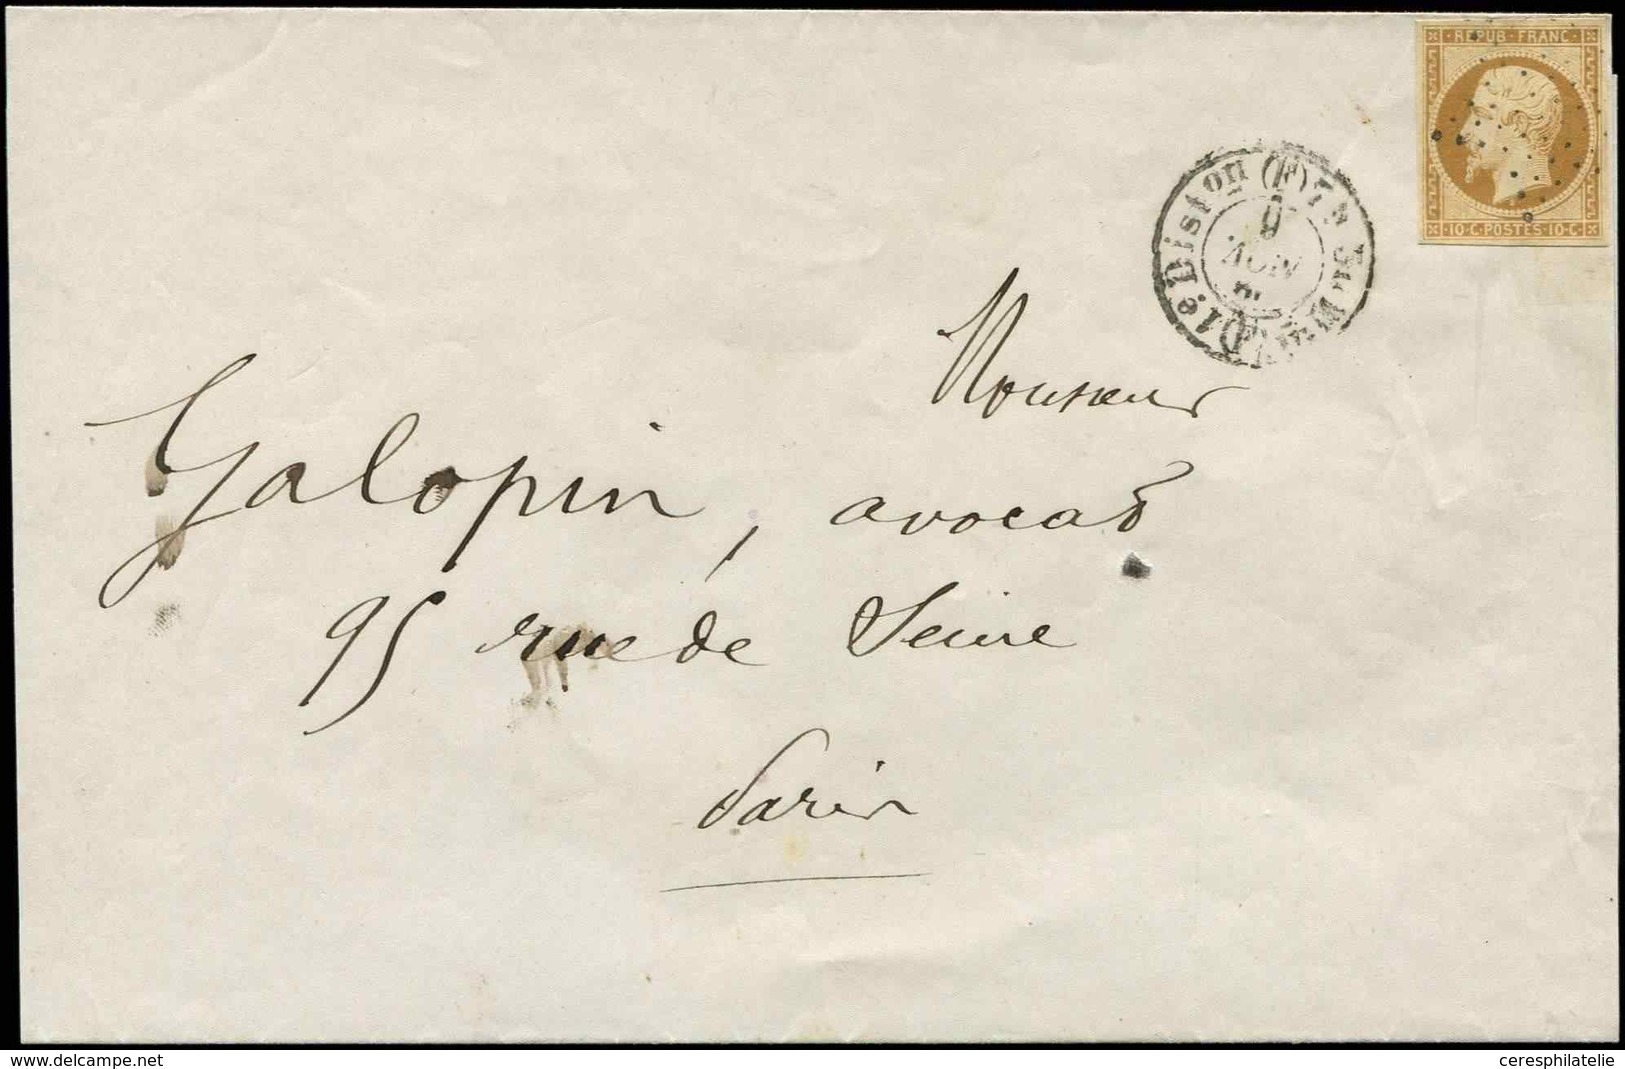 REPUB · FRANC ·
· 10 · C · POSTES · 10 · C ·
1e Dis ton (F)
9
NOV
Monsieur
Galopin, avocat
95 rue de Seine
Paris
www.delcampe.net
ceresphilatelie